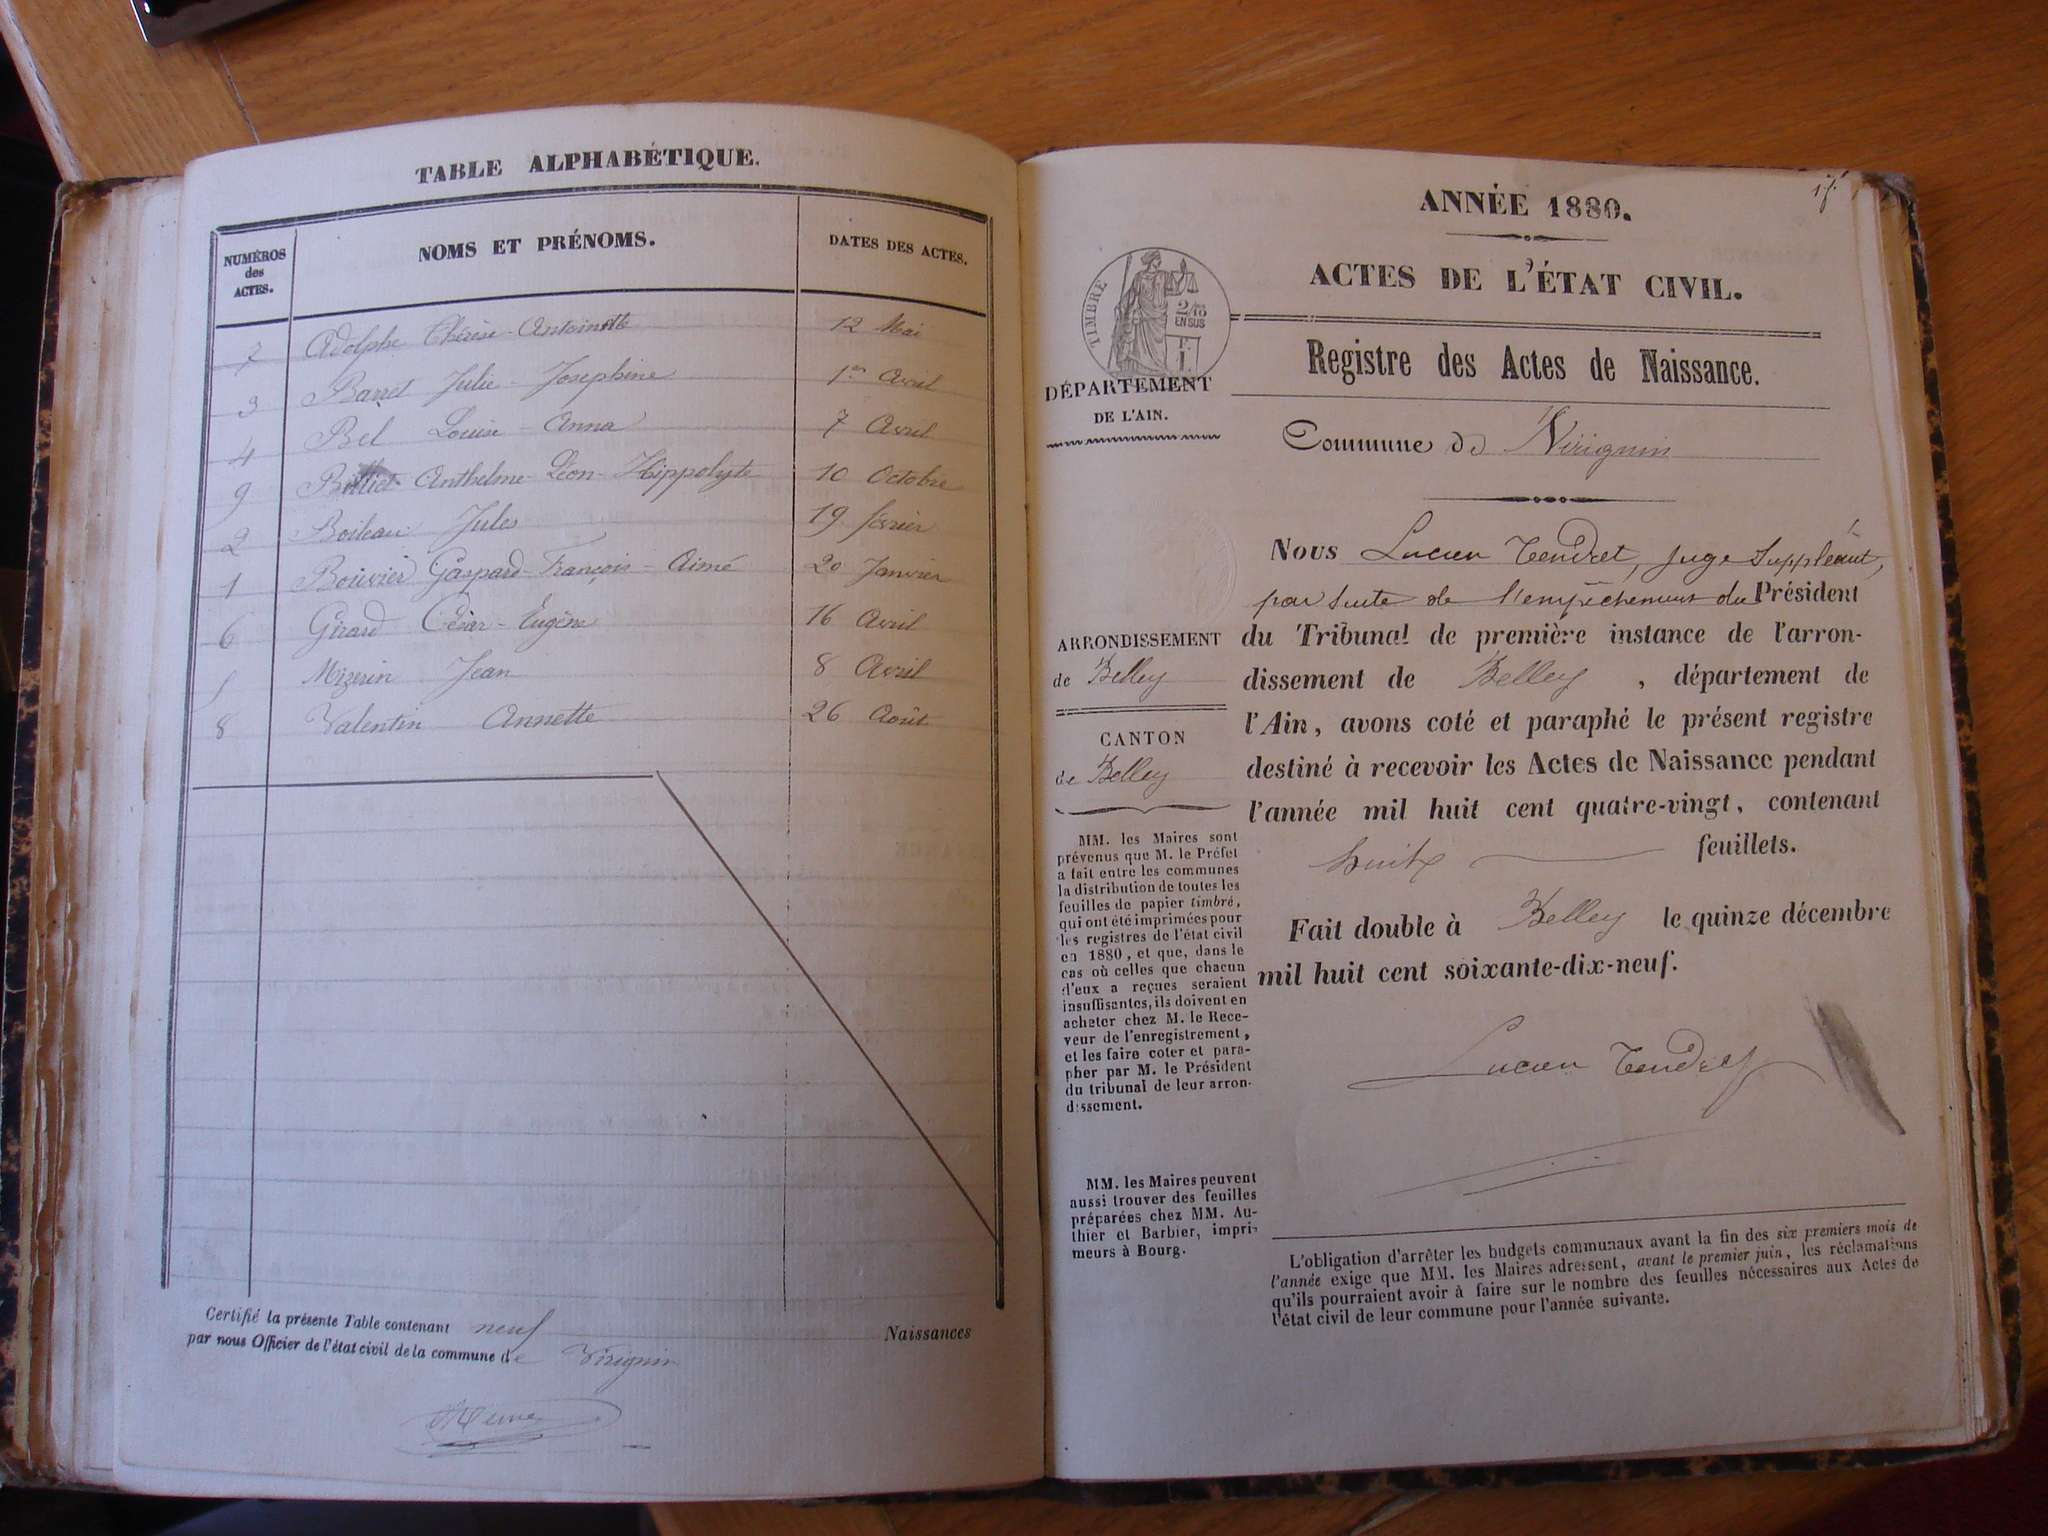 TABLE ALPHABÉTIQUE.
NUMÉROS des ACTES. NOMS ET PRÉNOMS. DATES DES ACTES.
7 Adolphe Thérèse-Antoinette 12 Mai
3 Barret Julie-Josephine 1er Avril
4 Bel Louise-Anna 7 Avril
9 Billiet Anthelme-Léon-Hippolyte 10 Octobre
2 Boileau Jules 19 février
1 Bouvier Gaspard-François-Aimé 20 Janvier
6 Girard César-Eugène 16 Avril
5 Mizerin Jean 8 Avril
8 Valentin Annette 26 Août
Certifié la présente Table contenant neuf Naissances
par nous Officier de l'état civil de la commune de Virignin
ANNÉE 1880.
ACTES DE L'ÉTAT CIVIL.
TIMBRE
2/10
EN SUS
DÉPARTEMENT
DE L'AIN.
Registre des Actes de Naissance.
Commune de Virignin
Nous Lucien Tendret, juge suppléant,
par suite de l'empêchement du Président
du Tribunal de première instance de l'arron-
dissement de Belley, département de
l'Ain, avons coté et paraphé le présent registre
destiné à recevoir les Actes de Naissance pendant
l'année mil huit cent quatre-vingt, contenant
huit feuillets.
Fait double à Belley le quinze décembre
mil huit cent soixante-dix-neuf.
Lucien Tendret
ARRONDISSEMENT
de Belley
CANTON
de Belley
MM. les Maires sont
prévenus que M. le Préfet
a fait entre les communes
la distribution de toutes les
feuilles de papier timbré,
qui ont été imprimées pour
les registres de l'état civil
en 1880, et que, dans le
cas où celles que chacun
d'eux a reçues seraient
insuffisantes, ils doivent en
acheter chez M. le Rece-
veur de l'enregistrement,
et les faire coter et para-
pher par M. le Président
du tribunal de leur arron-
dissement.
MM. les Maires peuvent
aussi trouver des feuilles
préparées chez MM. Au-
thier et Barbier, impri-
meurs à Bourg.
L'obligation d'arrêter les budgets communaux avant la fin des six premiers mois de
l'année exige que MM. les Maires adressent, avant le premier juin, les réclamations
qu'ils pourraient avoir à faire sur le nombre des feuilles nécessaires aux Actes de
l'état civil de leur commune pour l'année suivante.